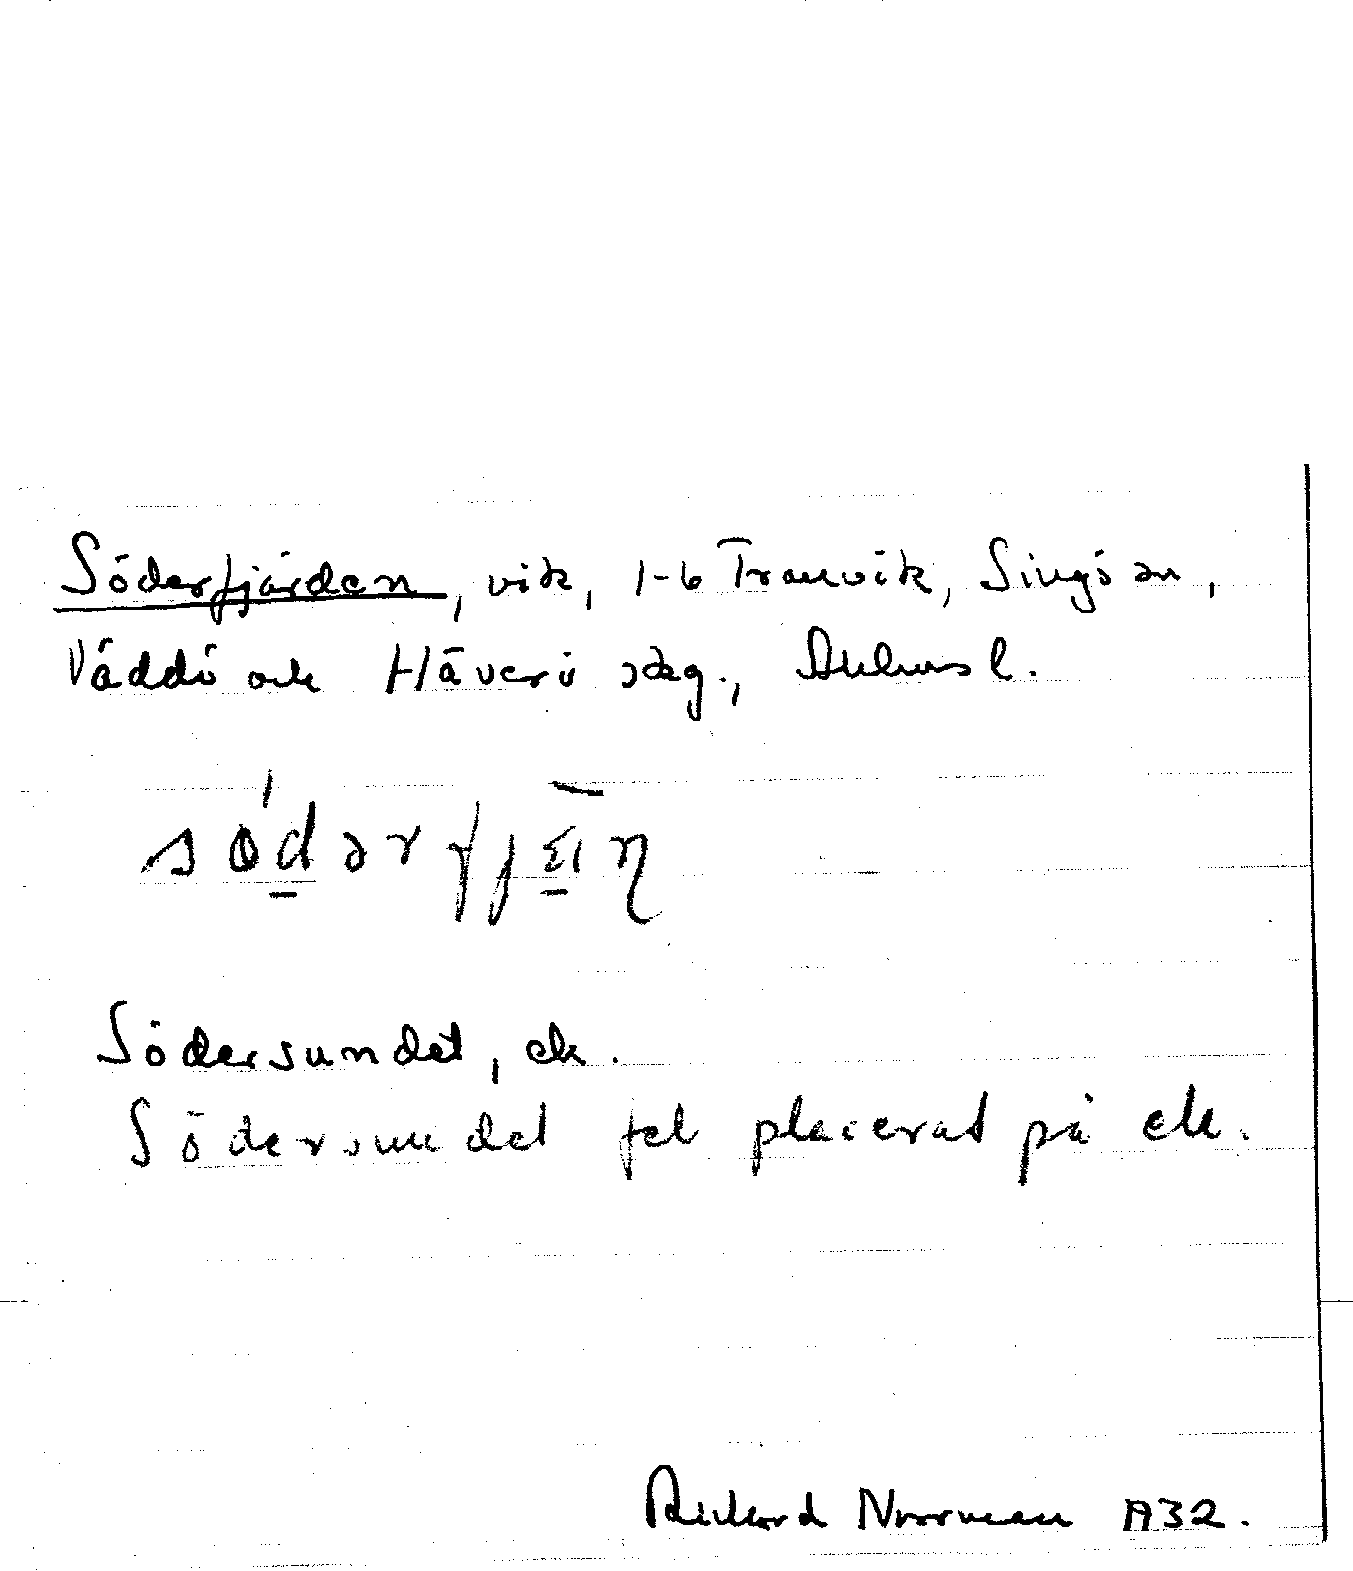 Söderfjärden, vik, 1-6 Tranvik, Singö sn,
Väddö och Häverö skg., Sthlms l.
Södersundet, ek.
Södersundet fel placerat på ek.
Rickard Norrman A32.